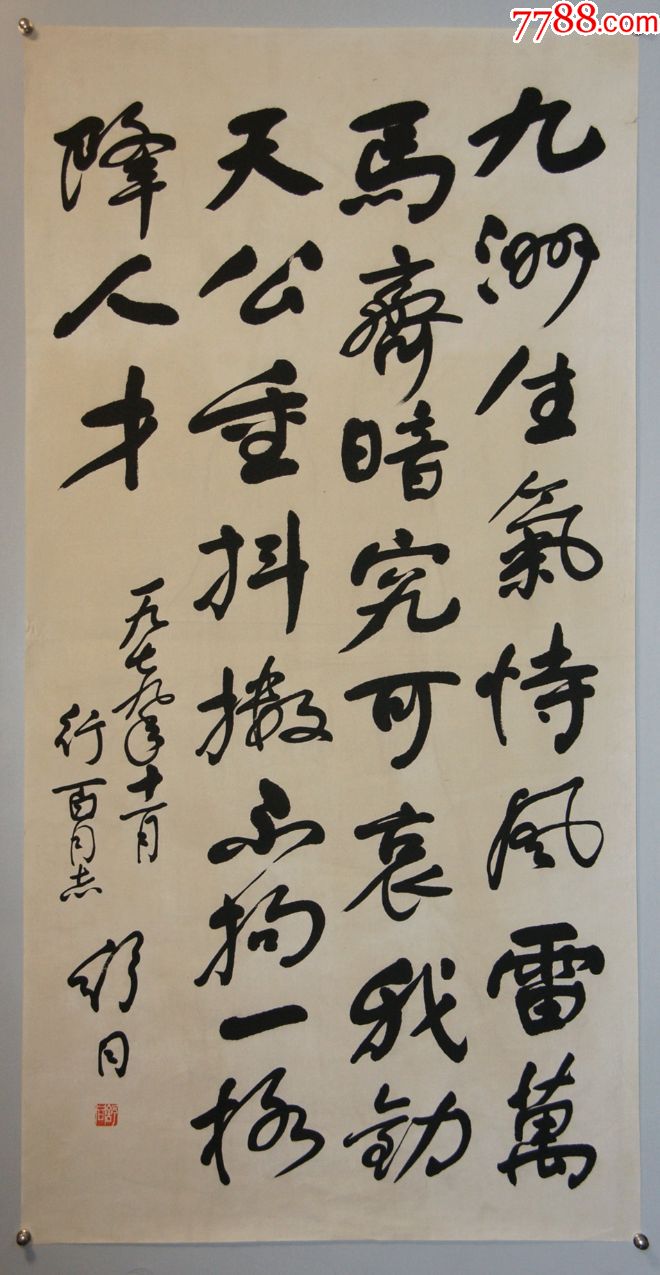 7788.com
九洲生氣恃风雷萬
馬齊暗究可哀我勸
天公重抖擻不拘一格
降人才
一九七九年十一月
行百同志
舒同